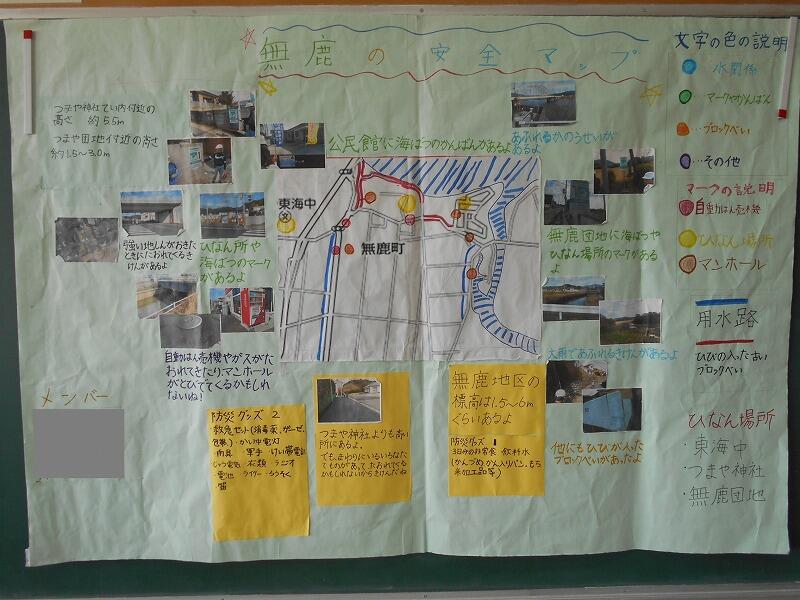 無鹿の安全マップ
つまや神社てい内付近の
高さ 約5.5m
つまや団地付近の高さ
約1.5~3.0m
公民館前に海ばつのかんばんがあるよ
あふれるかのうせいが
あるよ
東海中
無鹿町
強い地しんがおきた
ときにたおれてくるき
けんがあるよ
ひなん所や
海ばつのマーク
があるよ
無鹿団地に海ばつや
ひなん場所のマークがある
よ
自動はん売機やガスがた
おれてきたり、マンホール
がとびでてくるかもしれ
ないね!
大雨であふれるきけんがあるよ
他にもひびが入った
ブロックべいがあったよ
メンバー
防災グッズ 2
救急セット(消毒薬、ガーゼ、
包帯)・かい中電灯
雨具 軍手 けい帯電話
じゅう電器 衣類 ラジオ
電池 ライター ろうそく
笛
つまや神社よりも高い
所にあるよ。
でも、まわりにいろいろなたて
ものがあって、たおれてくる
かもしれないからきけんだね
無鹿地区の
標高は1.5~6m
くらいあるよ
防災グッズ 1
3日分のひ常食 飲料水
(かんづめ かん入りパン、もち
米加工品等)
文字の色の説明
水関係
マークやかんばん
…ブロックべい
…その他
マークの説明
自動はん売機
ひなん場所
マンホール
用水路
ひびの入った古い
ブロックべい
ひなん場所
・東海中
・つまや神社
・無鹿団地